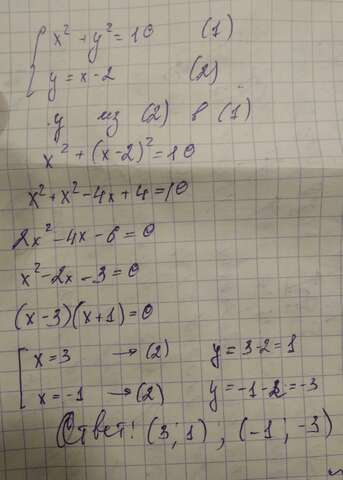 x² + y² = 10 (1)
y = x - 2 (2)
y из (2) в (1)
x² + (x-2)² = 10
x² + x² - 4x + 4 = 10
2x² - 4x - 6 = 0
x² - 2x - 3 = 0
(x-3)(x+1) = 0
x = 3 → (2) y = 3-2 = 1
x = -1 → (2) y = -1-2 = -3
Ответ: (3; 1) ; (-1; -3)